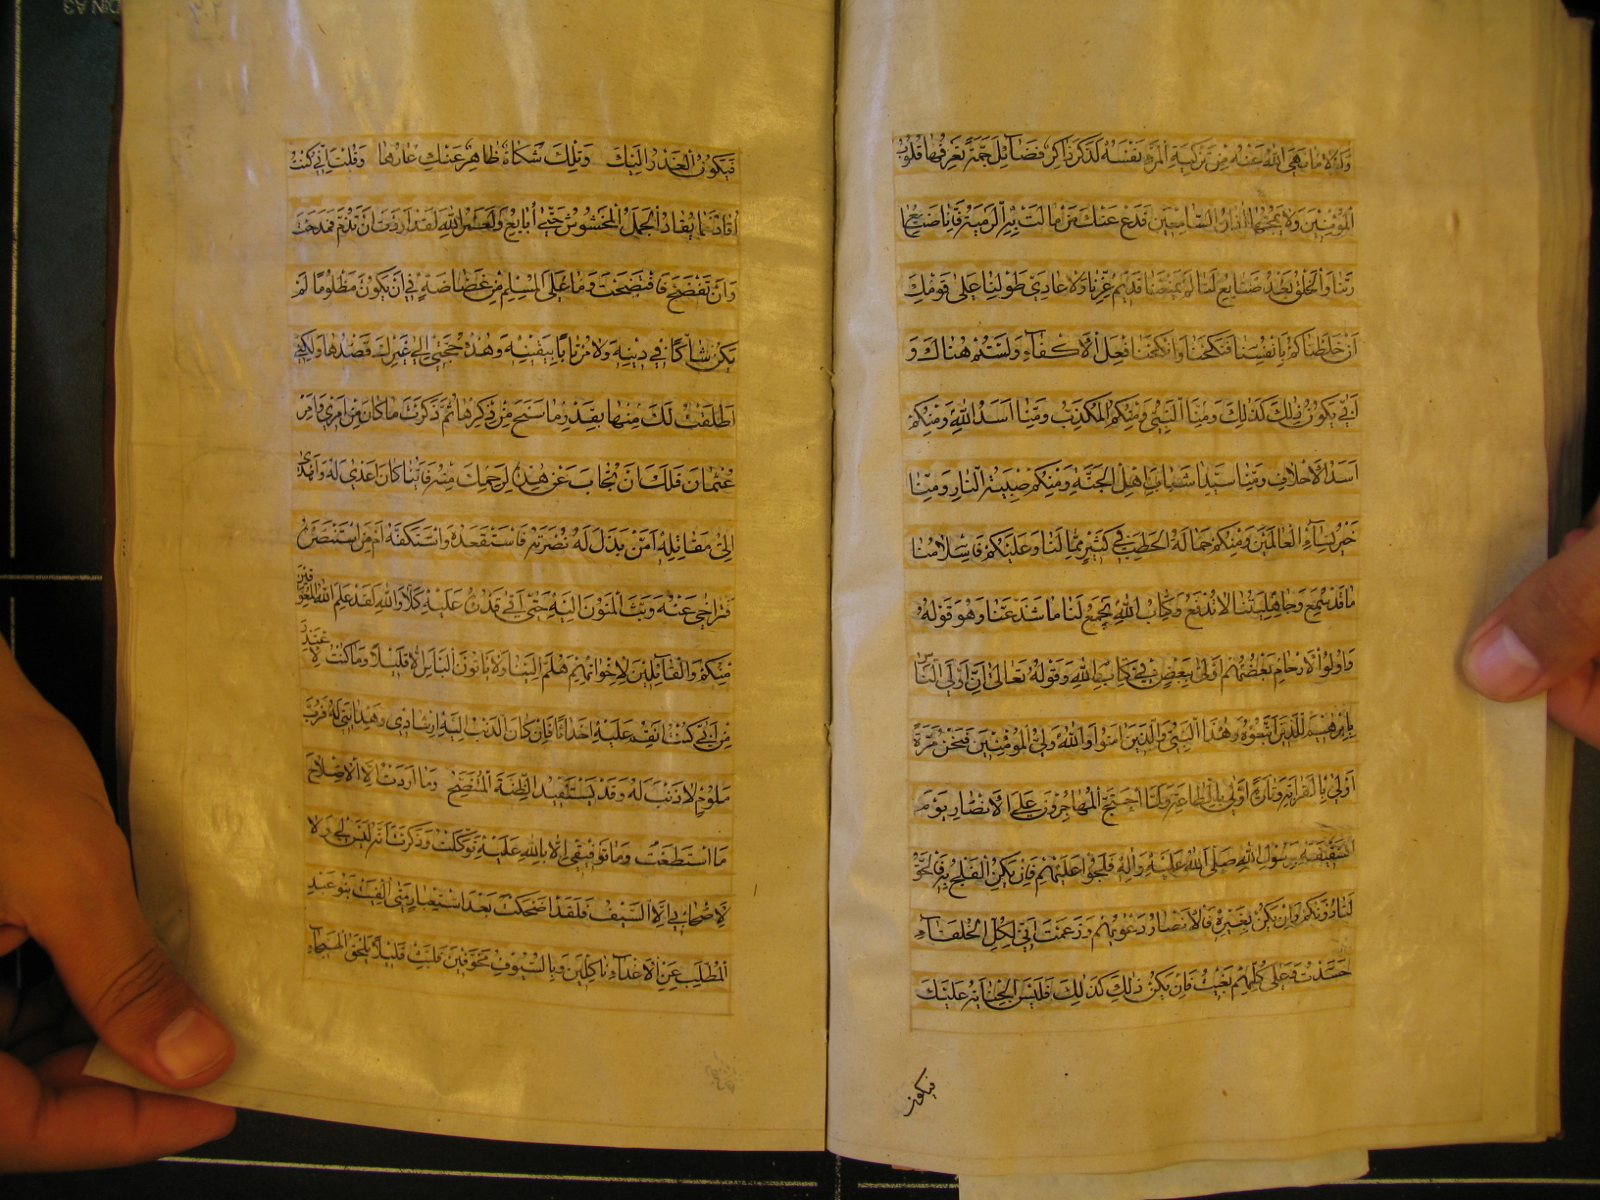 وَلَوْلَا مَا نَهَى اللهُ عَنْهُ مِنْ تَزْكِيَةِ الْمَرْءِ نَفْسَهُ لَذَكَرَ ذَاكِرٌ فَضَائِلَ جَمَّةً تَعْرِفُهَا قُلُوبُ
الْمُؤْمِنِينَ وَلَا تَمُجُّهَا اٰذَانُ السَّامِعِينَ فَدَعْ عَنْكَ مَنْ مَالَتْ بِهِ الرَّمِيَّةُ فَإِنَّا صَنَائِعُ
رَبِّنَا وَالْخَلْقُ بَعْدُ صَنَايِعُ لَنَا لَمْ يَمْنَعْنَا قَدِيمُ عِزِّنَا وَلَا عَادِيُّ طَوْلِنَا عَلَى قَوْمِكَ
اَنْ خَلَطْنَاكُمْ بِاَنْفُسِنَا فَنَكَحْنَا وَاَنْكَحْنَا فِعْلَ الْاَكْفَاءِ وَلَسْتُمْ هُنَاكَ وَ
اَنّٰى يَكُونُ ذٰلِكَ كَذٰلِكَ وَمِنَّا النَّبِيُّ وَمِنْكُمُ الْمُكَذِّبُ وَمِنَّا اَسَدُ اللهِ وَمِنْكُمْ
اَسَدُ الْاَحْلَافِ وَمِنَّا سَيِّدَا شَبَابِ اَهْلِ الْجَنَّةِ وَمِنْكُمْ صِبْيَةُ النَّارِ وَمِنَّا
خَيْرُ نِسَاءِ الْعَالَمِينَ وَمِنْكُمْ حَمَّالَةُ الْحَطَبِ فِي كَثِيرٍ مِمَّا لَنَا وَعَلَيْكُمْ فَاِسْلَامُنَا
مَا قَدْ سُمِعَ وَجَاهِلِيَّتُنَا لَا تُدْفَعُ وَكِتَابُ اللهِ يَجْمَعُ لَنَا مَا شَذَّ عَنَّا وَهُوَ قَوْلُهُ
وَاُولُوا الْاَرْحَامِ بَعْضُهُمْ اَوْلٰى بِبَعْضٍ فِي كِتَابِ اللهِ وَقَوْلُهُ تَعَالٰى اِنَّ اَوْلَى النَّاسِ
بِاِبْرٰهِيمَ لَلَّذِينَ اتَّبَعُوهُ وَهٰذَا النَّبِيُّ وَالَّذِينَ اٰمَنُوا وَاللهُ وَلِيُّ الْمُؤْمِنِينَ فَنَحْنُ مَرَّةً
اَوْلٰى بِالْقَرَابَةِ وَتَارَةً اَوْلٰى بِالطَّاعَةِ وَلَمَّا احْتَجَّ الْمُهَاجِرُونَ عَلَى الْاَنْصَارِ يَوْمَ
السَّقِيفَةِ بِرَسُولِ اللهِ صَلَّى اللهُ عَلَيْهِ وَاٰلِهِ فَلَجُوا عَلَيْهِمْ فَاِنْ يَكُنِ الْفَلَجُ بِهِ فَالْحَقُّ
لَنَا دُونَكُمْ وَاِنْ يَكُنْ بِغَيْرِهِ فَالْاَنْصَارُ عَلٰى دَعْوٰيهُمْ وَزَعَمْتَ اَنِّي لِكُلِّ الْخُلَفَاءِ
حَسَدْتُ وَعَلٰى كُلِّهِمْ بَغَيْتُ فَاِنْ يَكُنْ ذٰلِكَ كَذٰلِكَ فَلَيْسَ الْجِنَايَةُ عَلَيْكَ
فيكون
فَيَكُونَ الْعُذْرُ اِلَيْكَ وَتِلْكَ شَكَاةٌ ظَاهِرٌ عَنْكَ عَارُهَا وَقُلْتَ اِنِّي كُنْتُ
اُقَادُ كَمَا يُقَادُ الْجَمَلُ الْمَخْشُوشُ حَتّٰى اُبَايِعَ وَلَعَمْرُ اللهِ لَقَدْ اَرَدْتَ اَنْ تَذُمَّ فَمَدَحْتَ
وَاَنْ تَفْضَحَ فَافْتَضَحْتَ وَمَا عَلَى الْمُسْلِمِ مِنْ غَضَاضَةٍ فِي اَنْ يَكُونَ مَظْلُومًا لَمْ
يَكُنْ شَاكًّا فِي دِينِهِ وَلَا مُرْتَابًا بِيَقِينِهِ وَهٰذِهِ حُجَّتِي اِلٰى غَيْرِكَ قَصْدُهَا وَلٰكِنِّي
اَطْلَقْتُ لَكَ مِنْهَا بِقَدْرِ مَا سَنَحَ مِنْ ذِكْرِهَا ثُمَّ ذَكَرْتَ مَا كَانَ مِنْ اَمْرِي وَاَمْرِ
عُثْمَانَ فَلَكَ اَنْ تُجَابَ عَنْ هٰذِهِ لِرَحِمِكَ مِنْهُ فَاَيُّنَا كَانَ اَعْدٰى لَهُ وَاَهْدٰى
اِلٰى مَقَاتِلِهِ اَمَنْ بَذَلَ لَهُ نُصْرَتَهُ فَاسْتَقْعَدَهُ وَاسْتَكَفَّهُ اَمْ مَنِ اسْتَنْصَرَهُ
فَتَرَاخٰى عَنْهُ وَبَثَّ الْمَنُونَ اِلَيْهِ حَتّٰى اَتٰى قَدَرُهُ عَلَيْهِ كَلَّا وَاللهِ لَقَدْ عَلِمَ اللهُ الْمُعَوِّقِينَ
مِنْكُمْ وَالْقَائِلِينَ لِاِخْوَانِهِمْ هَلُمَّ اِلَيْنَا وَلَا يَاْتُونَ الْبَاْسَ اِلَّا قَلِيلًا وَمَا كُنْتُ لِاَعْتَذِرَ
مِنْ اَنِّي كُنْتُ اَنْقِمُ عَلَيْهِ اَحْدَاثًا فَاِنْ كَانَ الذَّنْبُ اِلَيْهِ اِرْشَادِي وَهِدَايَتِي لَهُ فَرُبَّ
مَلُومٍ لَا ذَنْبَ لَهُ وَقَدْ يَسْتَفِيدُ الظِّنَّةَ الْمُتَنَصِّحُ وَمَا اَرَدْتُ اِلَّا الْاِصْلَاحَ
مَا اسْتَطَعْتُ وَمَا تَوْفِيقِي اِلَّا بِاللهِ عَلَيْهِ تَوَكَّلْتُ وَذَكَرْتَ اَنَّهُ لَيْسَ لِي وَلَا
لِاَصْحَابِي اِلَّا السَّيْفُ فَلَقَدْ اَضْحَكْتَ بَعْدَ اسْتِعْبَارٍ مَتٰى اُلْفِيَتْ بَنُو عَبْدِ
الْمُطَّلِبِ عَنِ الْاَعْدَاءِ نَاكِلِينَ وَبِالسُّيُوفِ مُخَوَّفِينَ فَلَبِّثْ قَلِيلًا يَلْحَقِ الْهَيْجَاءَ